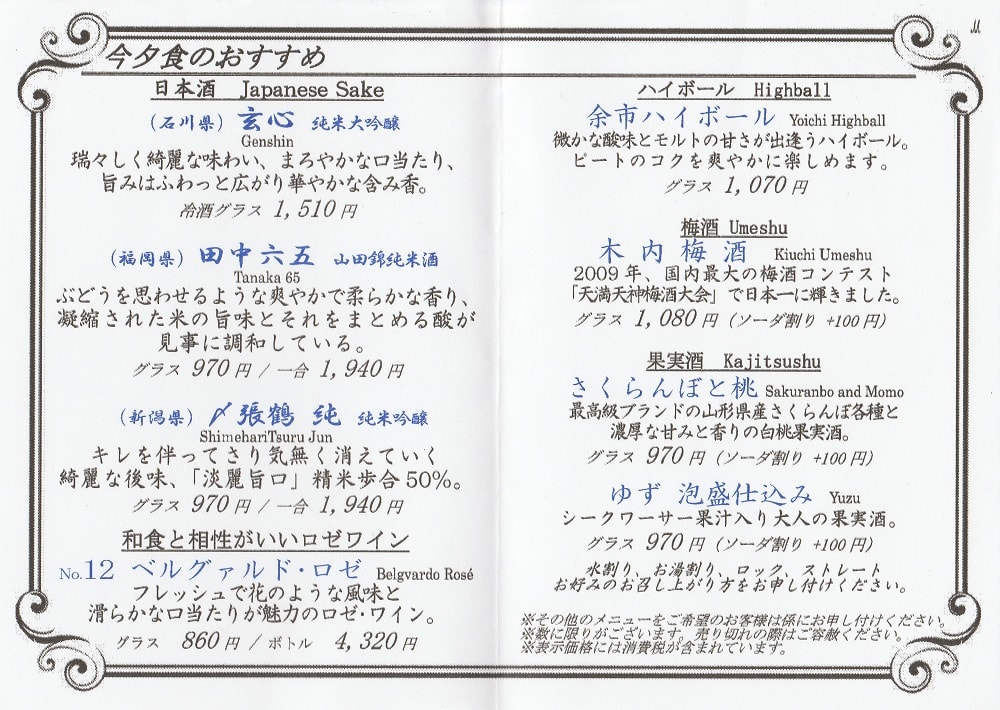 今夕食のおすすめ
日本酒 Japanese Sake
（石川県） 玄心 純米大吟醸
Genshin
瑞々しく綺麗な味わい、まろやかな口当たり、
旨みはふわっと広がり華やかな含み香。
冷酒グラス 1,510 円
（福岡県） 田中六五 山田錦純米酒
Tanaka 65
ぶどうを思わせるような爽やかで柔らかな香り、
凝縮された米の旨味とそれをまとめる酸が
見事に調和している。
グラス 970 円 / 一合 1,940 円
（新潟県） 〆張鶴 純 純米吟醸
ShimehariTsuru Jun
キレを伴ってさり気無く消えていく
綺麗な後味、「淡麗旨口」精米歩合50%。
グラス 970 円 / 一合 1,940 円
和食と相性がいいロゼワイン
No.12 ベルグァルド・ロゼ Belgvardo Rosé
フレッシュで花のような風味と
滑らかな口当たりが魅力のロゼ・ワイン。
グラス 860 円 / ボトル 4,320 円
ハイボール Highball
余市ハイボール Yoichi Highball
微かな酸味とモルトの甘さが出逢うハイボール。
ピートのコクを爽やかに楽しめます。
グラス 1,070 円
梅酒 Umeshu
木内梅酒 Kiuchi Umeshu
2009年、国内最大の梅酒コンテスト
「天満天神梅酒大会」で日本一に輝きました。
グラス 1,080 円（ソーダ割り +100 円）
果実酒 Kajitsushu
さくらんぼと桃 Sakuranbo and Momo
最高級ブランドの山形県産さくらんぼ各種と
濃厚な甘みと香りの白桃果実酒。
グラス 970 円（ソーダ割り +100 円）
ゆず 泡盛仕込み Yuzu
シークワーサー果汁入り大人の果実酒。
グラス 970 円（ソーダ割り +100 円）
水割り、お湯割り、ロック、ストレート
お好みのお召し上がり方をお申し付けください。
※その他のメニューをご希望のお客様は係にお申し付けください。
※数に限りがございます。売り切れの際はご容赦ください。
※表示価格には消費税が含まれています。